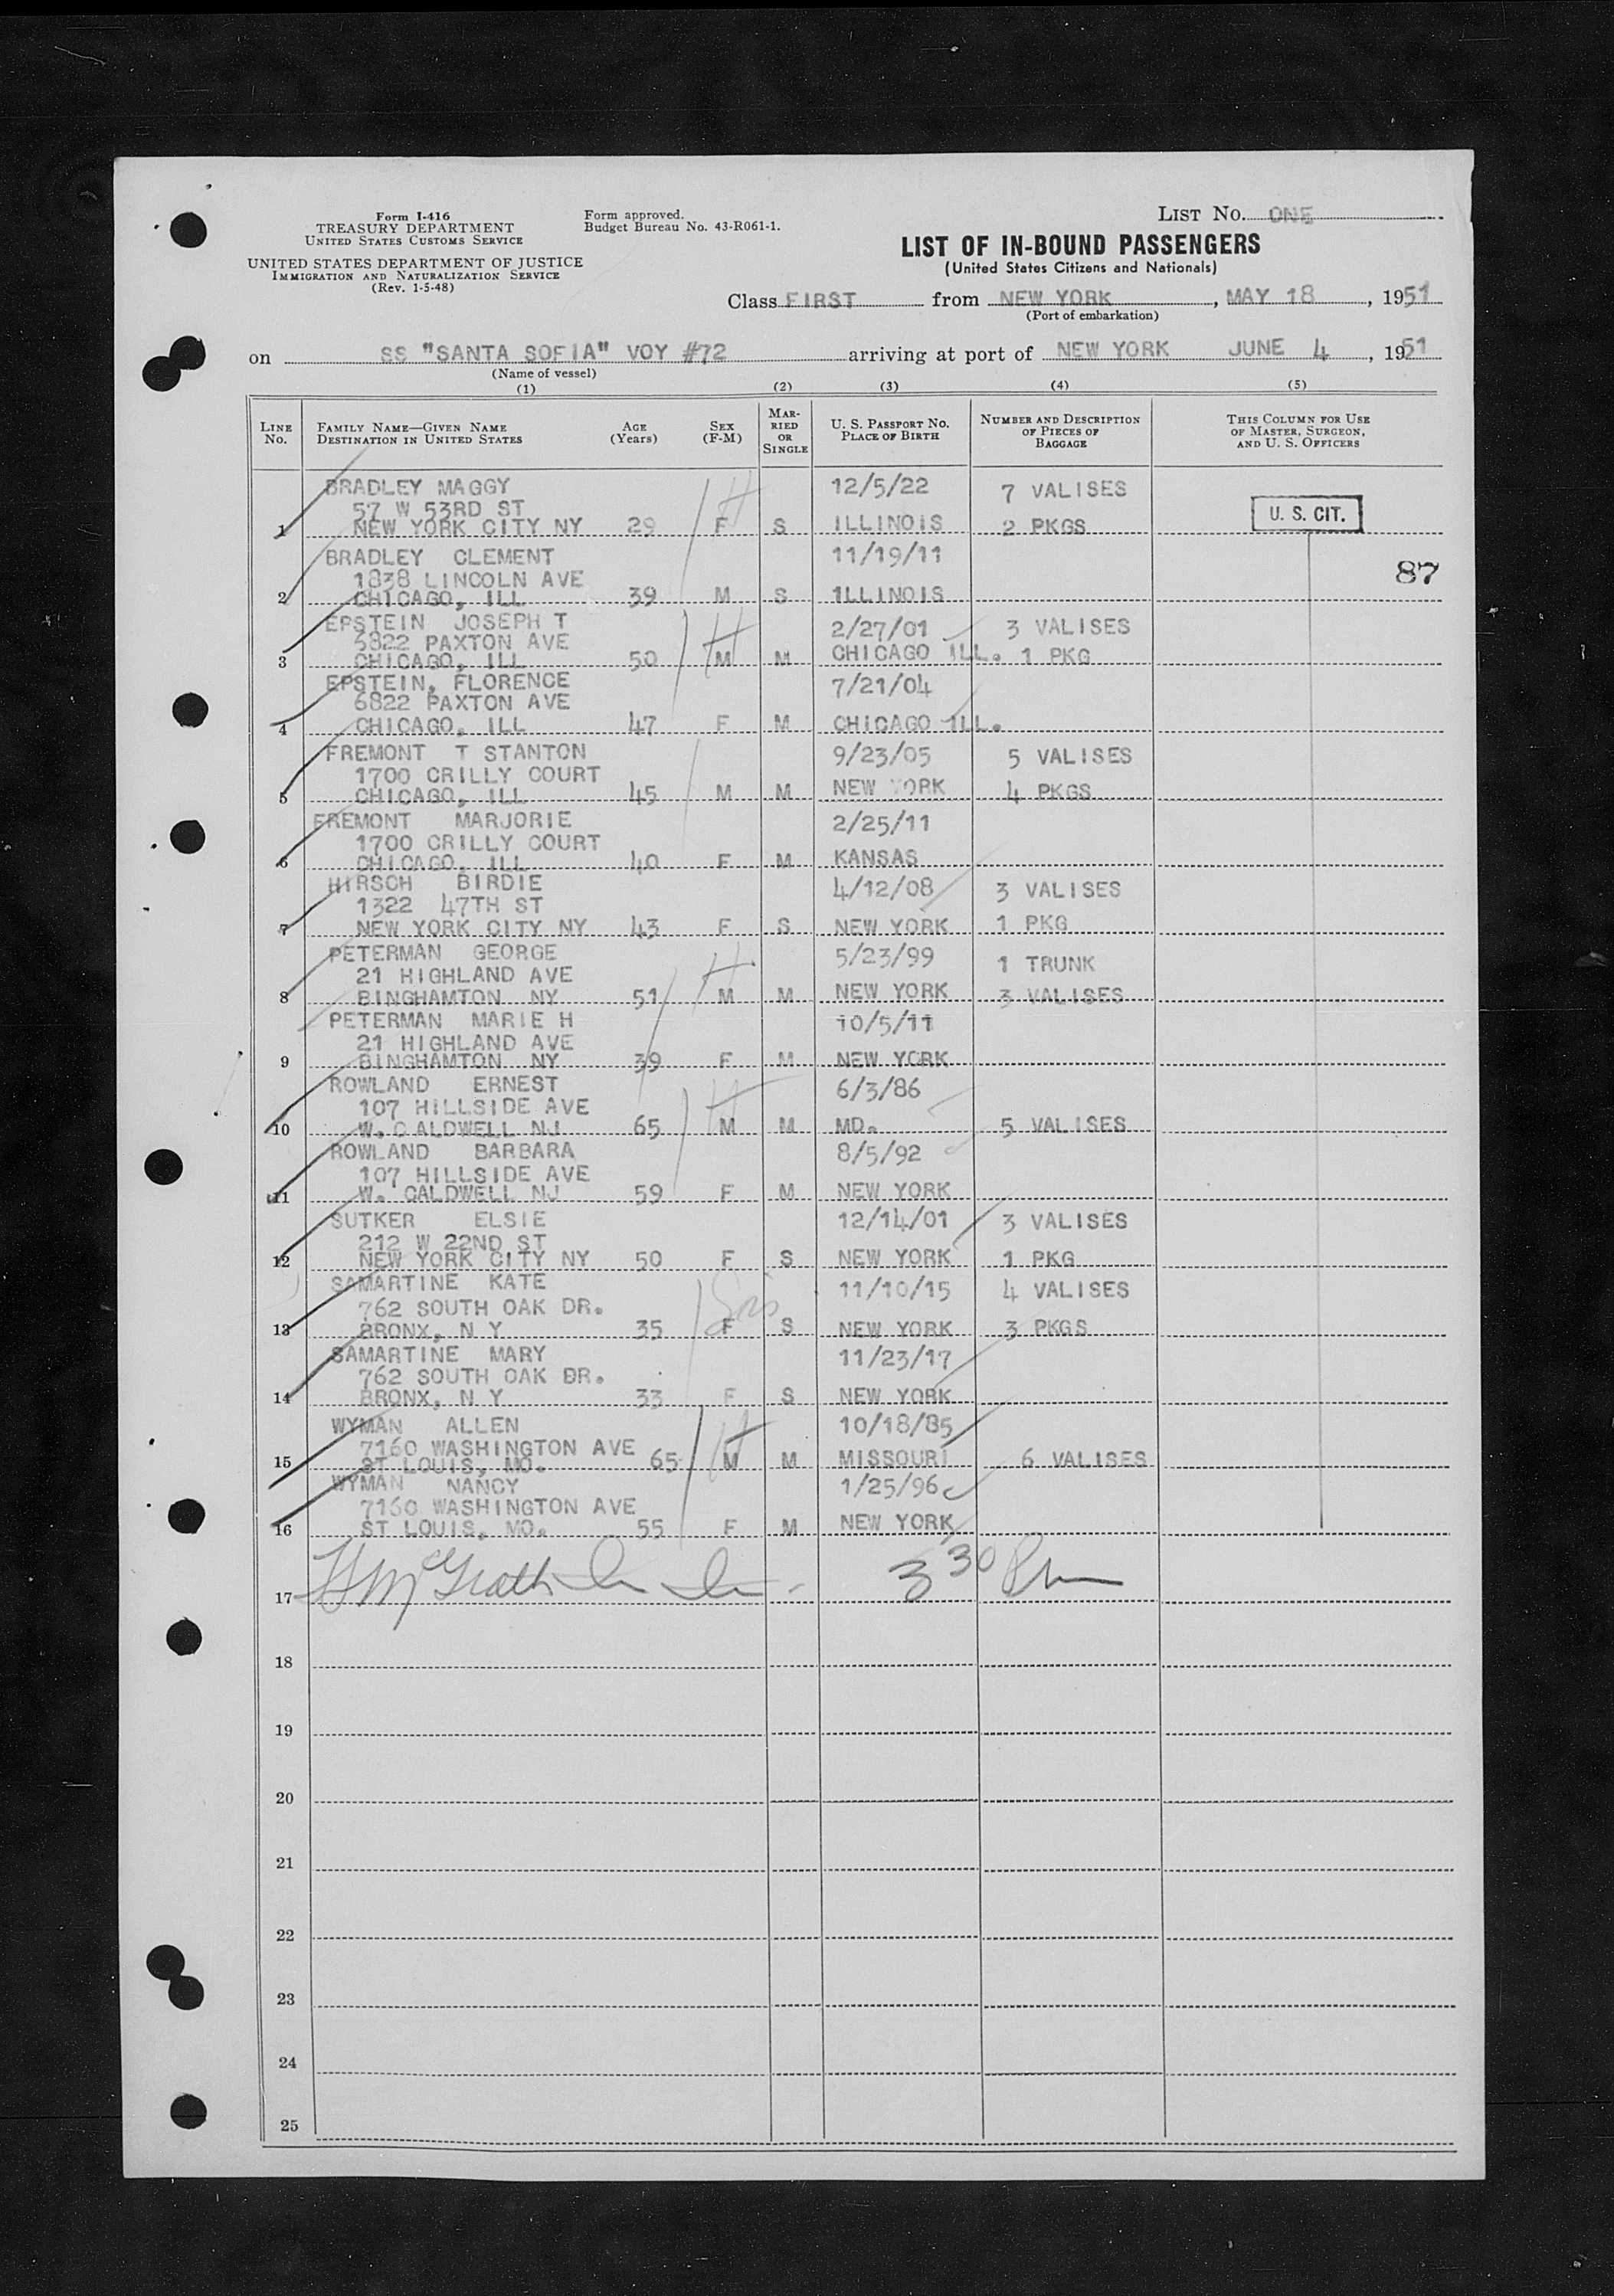 Form I-416
TREASURY DEPARTMENT
UNITED STATES CUSTOMS SERVICE
UNITED STATES DEPARTMENT OF JUSTICE
IMMIGRATION AND NATURALIZATION SERVICE
(Rev. 1-5-48)
Form approved.
Budget Bureau No. 43-R061-1.
LIST No. ONE
LIST OF IN-BOUND PASSENGERS
(United States Citizens and Nationals)
Class FIRST from NEW YORK, MAY 18, 1951
(Port of embarkation)
on SS "SANTA SOFIA" VOY #72 arriving at port of NEW YORK JUNE 4, 1951
(Name of vessel)
(1) (2) (3) (4) (5)
LINE No. FAMILY NAME—GIVEN NAME DESTINATION IN UNITED STATES AGE (Years) SEX (F-M) MARRIED OR SINGLE U. S. PASSPORT NO. PLACE OF BIRTH NUMBER AND DESCRIPTION OF PIECES OF BAGGAGE THIS COLUMN FOR USE OF MASTER, SURGEON, AND U. S. OFFICERS
BRADLEY MAGGY 12/5/22 7 VALISES
57 W 53RD ST
1 NEW YORK CITY NY 29 F S ILLINOIS 2 PKGS U. S. CIT.
BRADLEY CLEMENT 11/19/11
87
1838 LINCOLN AVE
2 CHICAGO, ILL 39 M S 1LLINOIS
EPSTEIN JOSEPH T 2/27/01 3 VALISES
6822 PAXTON AVE
3 CHICAGO, ILL 50 M M CHICAGO ILL. 1 PKG
EPSTEIN, FLORENCE 7/21/04
6822 PAXTON AVE
4 CHICAGO, ILL 47 F M CHICAGO ILL.
FREMONT T STANTON 9/23/05 5 VALISES
1700 CRILLY COURT
5 CHICAGO, ILL 45 M M NEW YORK 4 PKGS
FREMONT MARJORIE 2/25/11
1700 CRILLY COURT
6 CHICAGO, ILL 40 F M KANSAS
HIRSCH BIRDIE 4/12/08 3 VALISES
1322 47TH ST
7 NEW YORK CITY NY 43 F S NEW YORK 1 PKG
PETERMAN GEORGE 5/23/99 1 TRUNK
21 HIGHLAND AVE
8 BINGHAMTON NY 51 M M NEW YORK 3 VALISES
PETERMAN MARIE H 10/5/11
21 HIGHLAND AVE
9 BINGHAMTON NY 39 F M NEW YORK
ROWLAND ERNEST 6/3/86
107 HILLSIDE AVE
10 W. CALDWELL NJ 65 M M MD. 5 VALISES
ROWLAND BARBARA 8/5/92
107 HILLSIDE AVE
11 W. CALDWELL NJ 59 F M NEW YORK
SUTKER ELSIE 12/14/01 3 VALISES
212 W 22ND ST
12 NEW YORK CITY NY 50 F S NEW YORK 1 PKG
SAMARTINE KATE 11/10/15 4 VALISES
762 SOUTH OAK DR.
13 BRONX, N Y 35 F S NEW YORK 3 PKGS
SAMARTINE MARY 11/23/17
762 SOUTH OAK DR.
14 BRONX, N Y 33 F S NEW YORK
WYMAN ALLEN 10/18/85
7160 WASHINGTON AVE
15 ST LOUIS, MO. 65 M M MISSOURI 6 VALISES
WYMAN NANCY 1/25/96
7160 WASHINGTON AVE
16 ST LOUIS, MO. 55 F M NEW YORK
17 McGrath 3 30 Pm
18
19
20
21
22
23
24
25